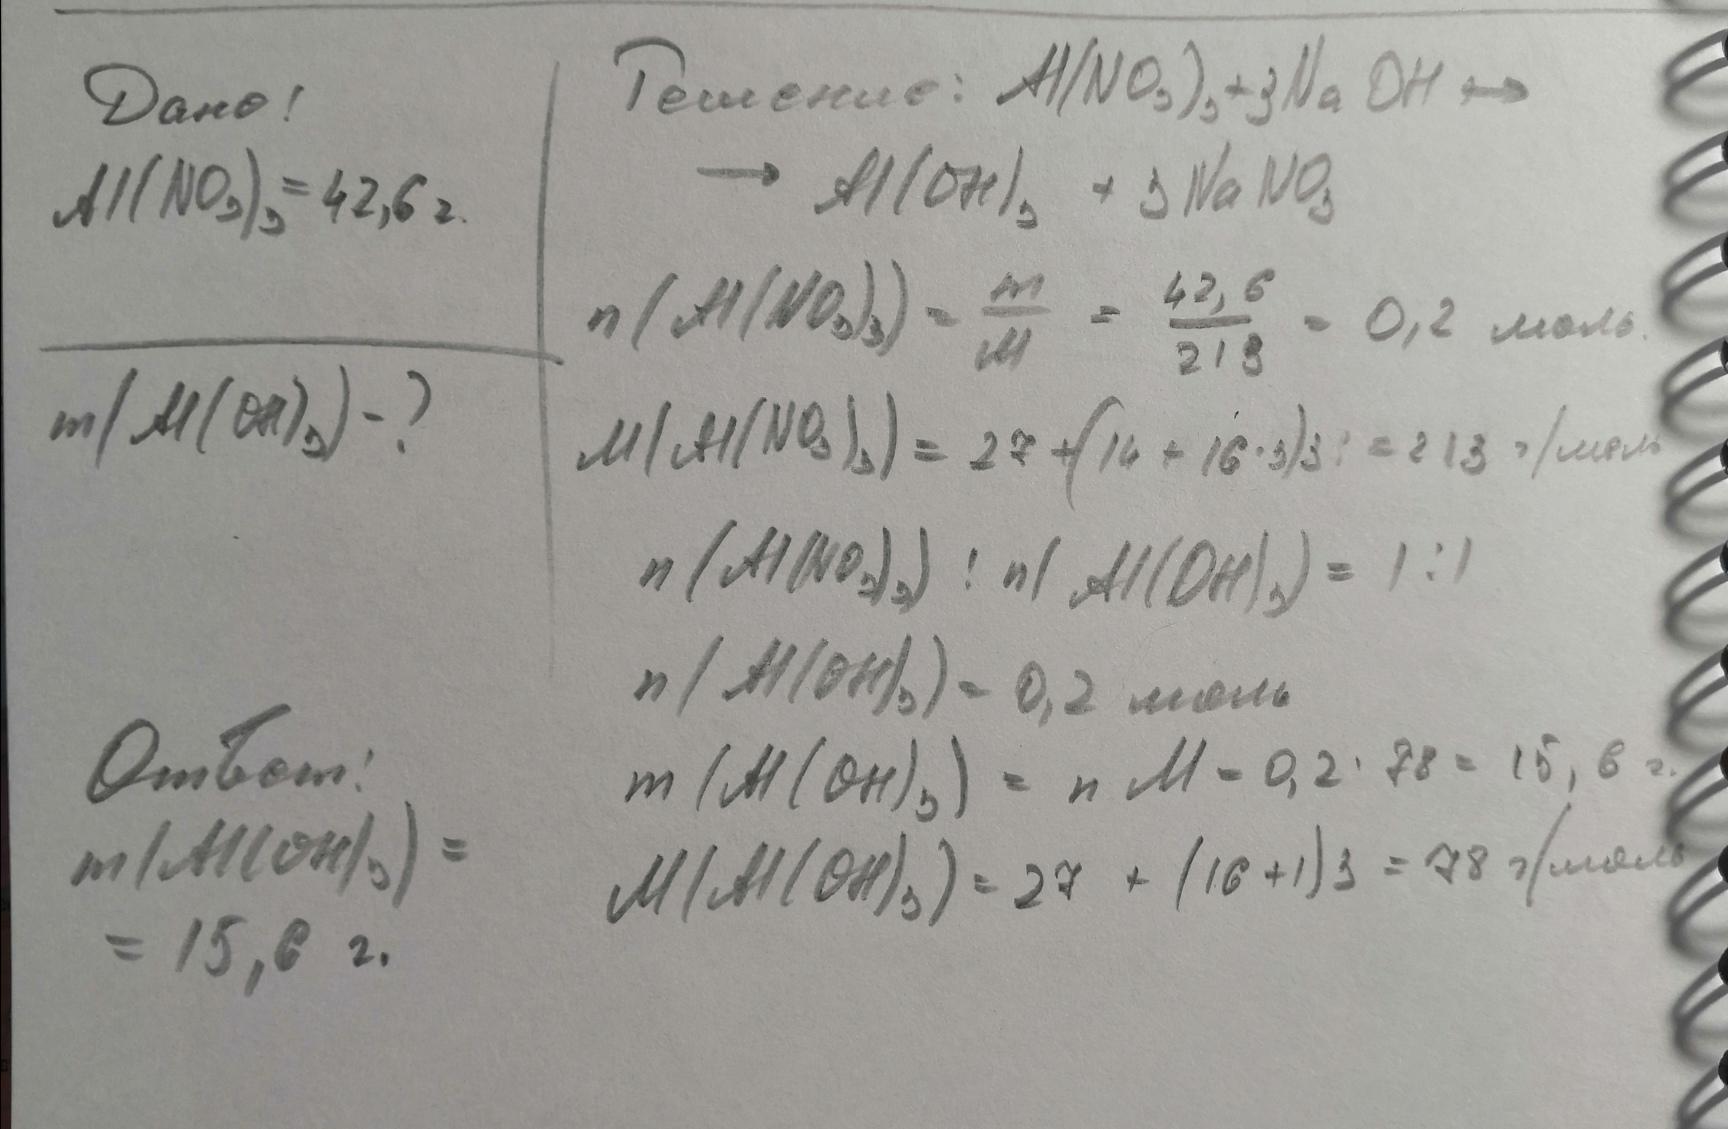 Дано:
Al(NO₃)₃ = 42,6 г.
m(Al(OH)₃) - ?
Решение: Al(NO₃)₃ + 3NaOH →
→ Al(OH)₃ + 3NaNO₃
n(Al(NO₃)₃) = m/M = 42,6/213 = 0,2 моль.
M(Al(NO₃)₃) = 27 + (14 + 16·3)3 = 213 г/моль
n(Al(NO₃)₃) : n(Al(OH)₃) = 1:1
n(Al(OH)₃) = 0,2 моль
m(Al(OH)₃) = n M = 0,2 · 78 = 15,6 г.
M(Al(OH)₃) = 27 + (16+1)3 = 78 г/моль
Ответ:
m(Al(OH)₃) =
= 15,6 г.